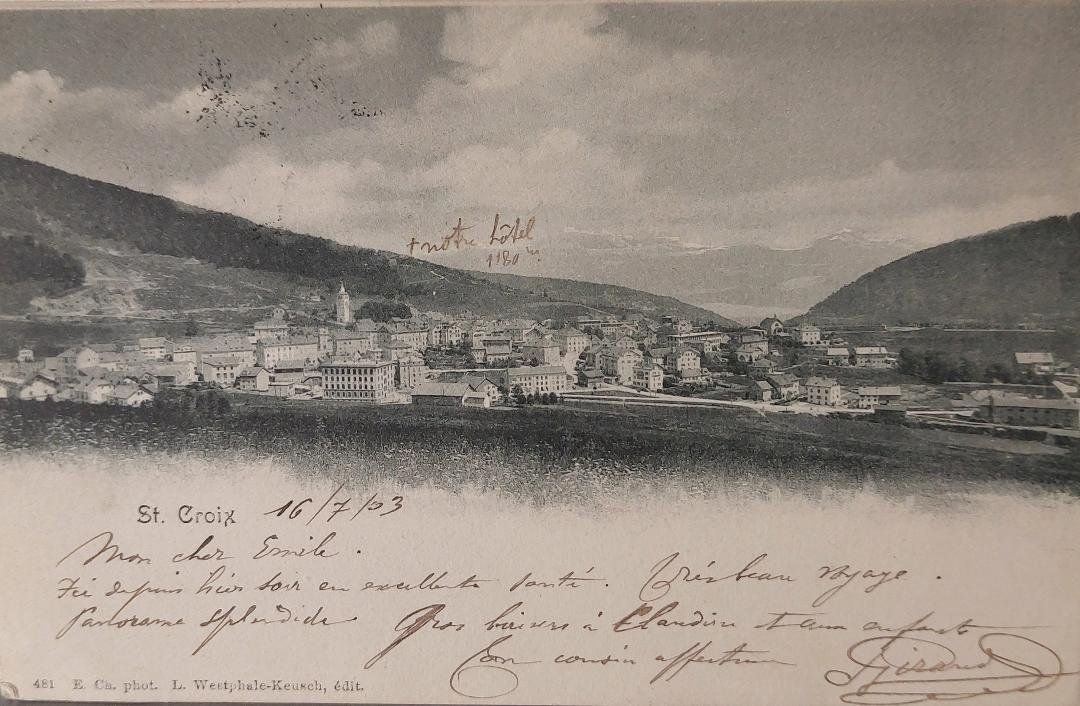 + notre hôtel
1180 m.
St. Croix 16/7/03
Mon cher Emile.
Ici depuis hier soir en excellente santé. Très beau voyage.
Panorama splendide. Gros baisers à Claudine et aux enfants
Ton cousin affectionné Girard
481 E. Ch. phot. L. Westphale-Keusch, édit.